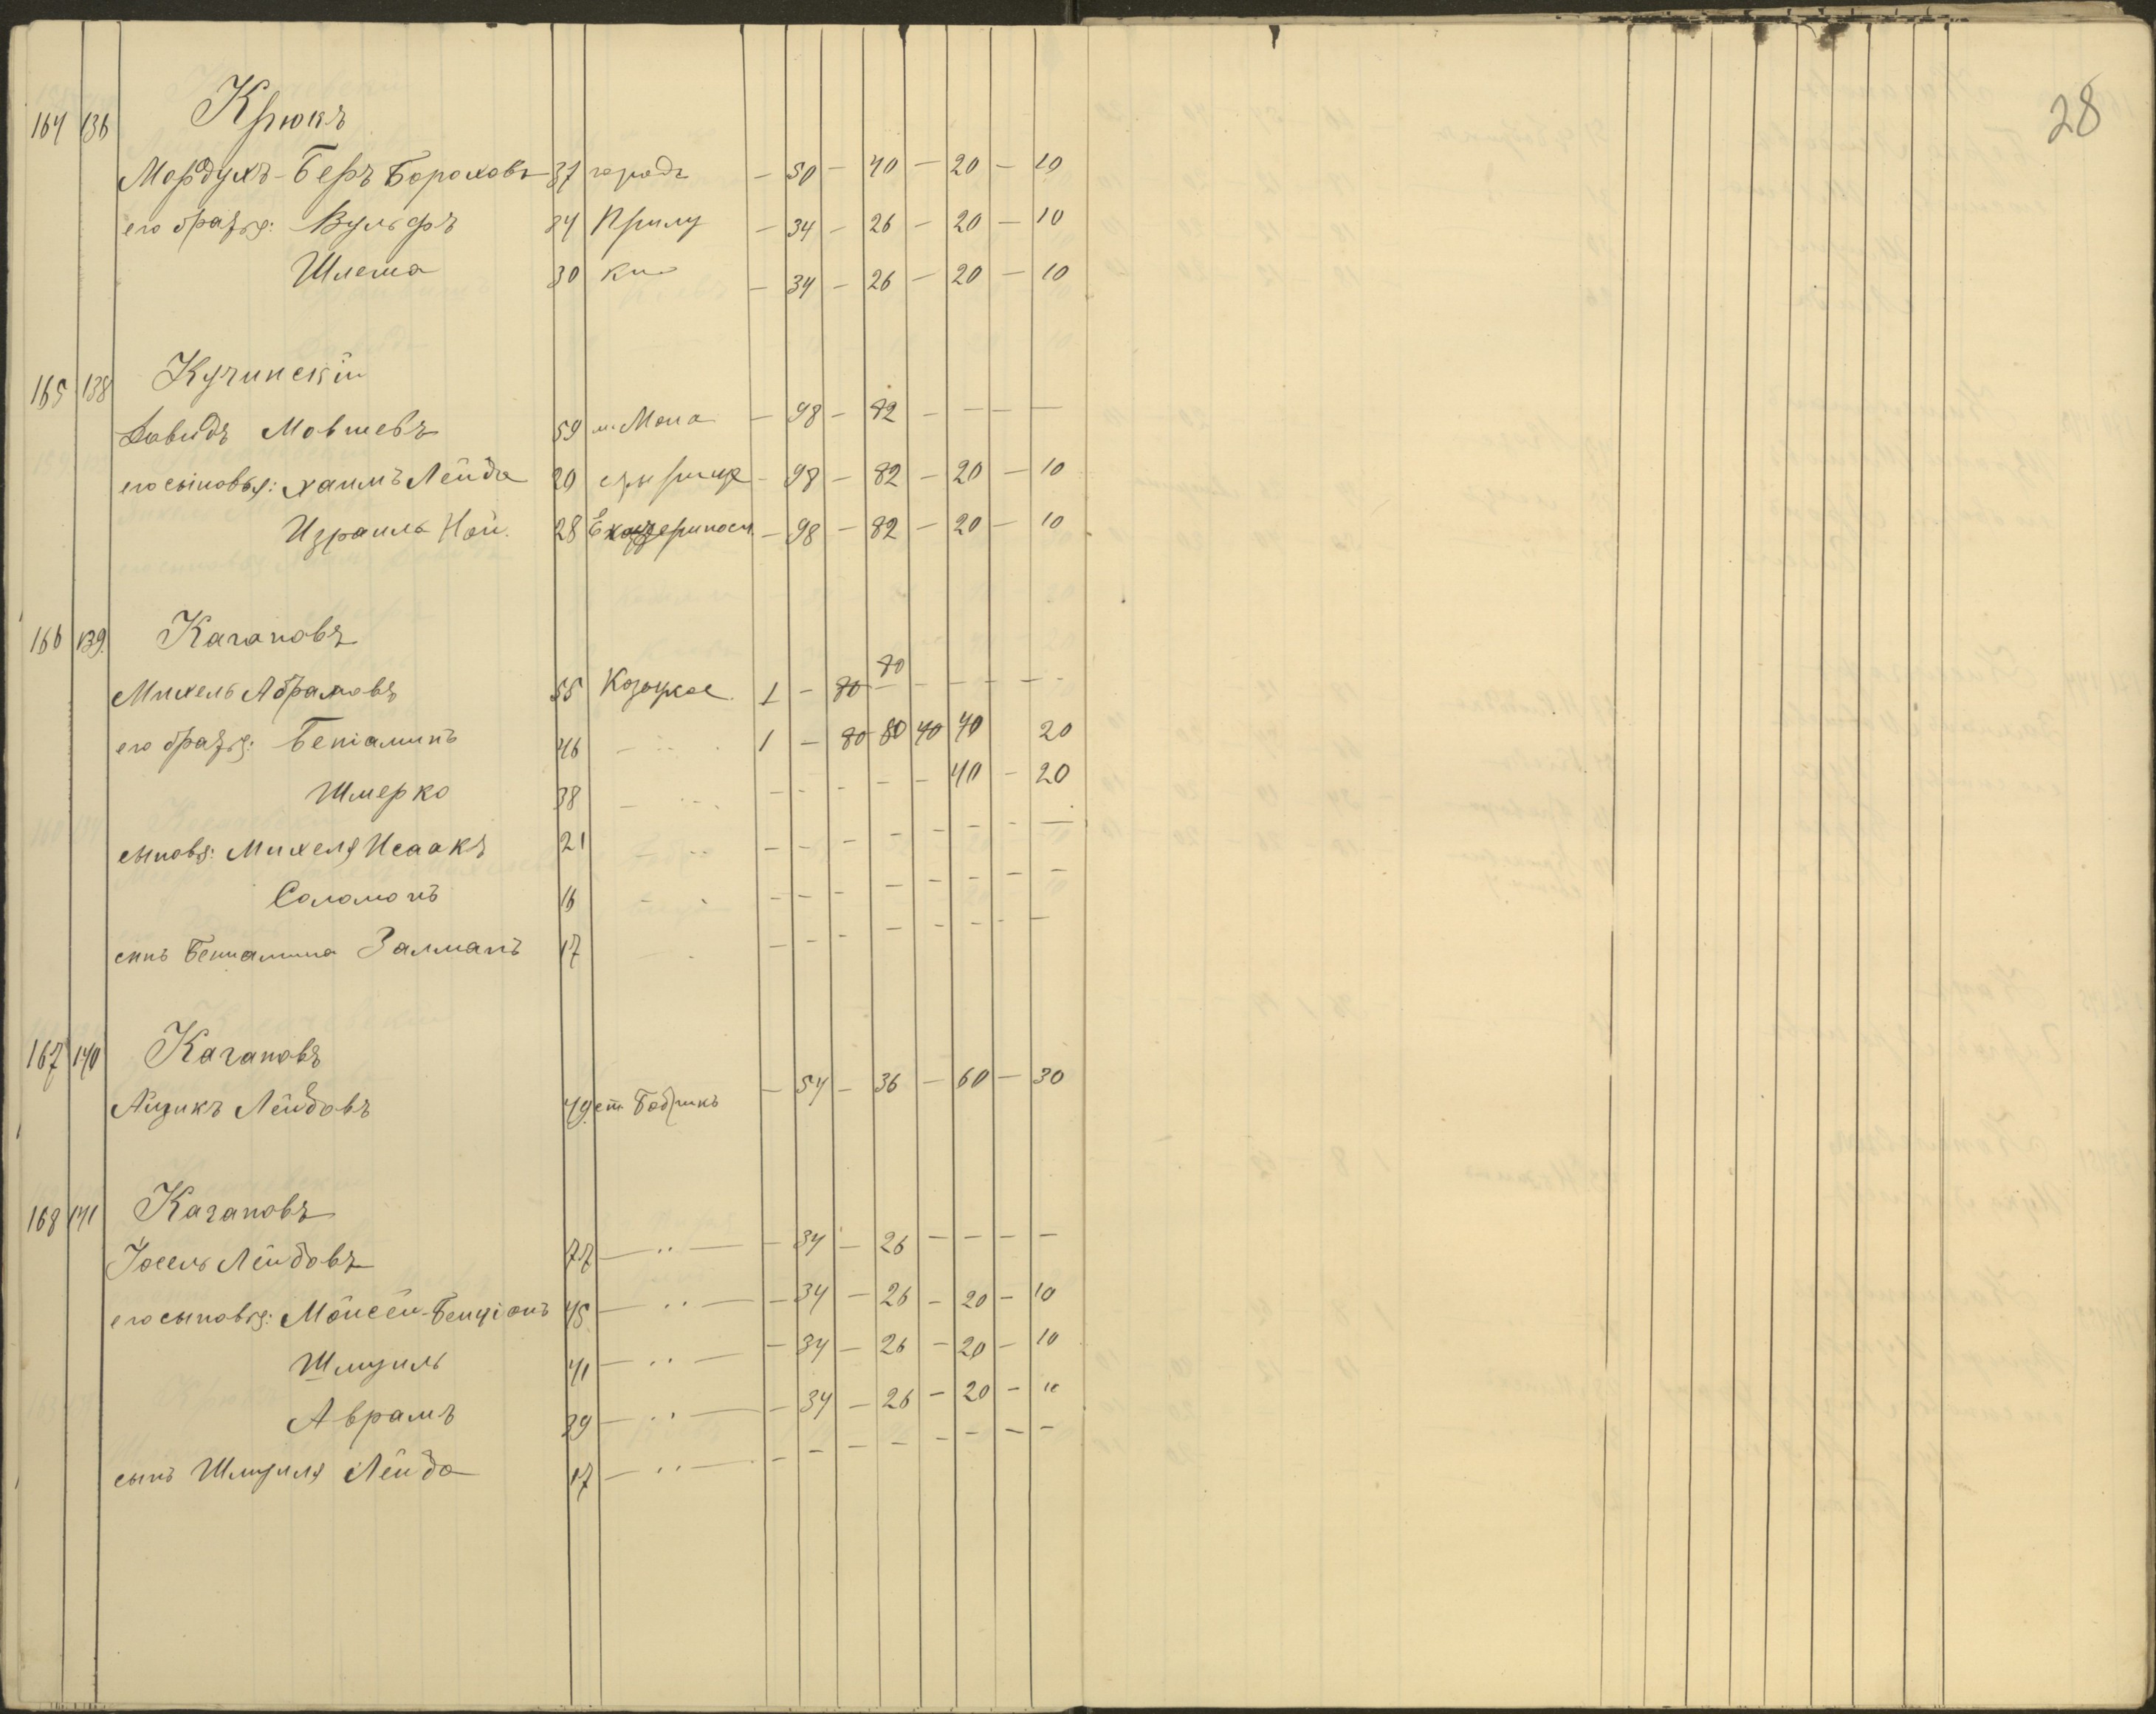 28
164 136 Крюкъ
Мордухъ-Беръ Бороховъ 37 городъ — 50 — 40 — 20 — 10
его братья: Вульфъ 34 Прилу — 34 — 26 — 20 — 10
Шлема 30 ки — 34 — 26 — 20 — 10
165 138 Кучинскій
Давидъ Мовшевъ 59 м. Мена — 98 — 82 — — — —
его сыновья: Хаимъ Лейба 29 — 98 — 82 — 20 — 10
Израиль Ной. 28 Екатериносл. — 98 — 82 — 20 — 10
166 139. Кагановъ
Михель Абрамовъ 55 Козацкое 1 — 80 80 — — — —
его братья: Беніаминъ 46 — " 1 — 80 80 40 40 20
Шмерко 38 — " — — — — — 40 — 20
сыновья: Михеля Исаакъ 21 — " — — — — — — — —
Соломонъ 16 — " — — — — — — — —
сынъ Беніамина Залманъ 17 — — — — — — — —
167 140 Кагановъ
Айзикъ Лейбовъ 49. ст. Бобрикъ — 54 — 36 — 60 — 30
168 141 Кагановъ
Іосель Лейбовъ 77 — " — — 34 — 26 — — — —
его сыновья: Мойсей-Бенціонъ 45 — " — — 34 — 26 — 20 — 10
Шмуиль 41 — " — — 34 — 26 — 20 — 10
Аврамъ 39 — " — — 34 — 26 — 20 — "
сынъ Шмуиля Лейба 17 — " — — — — — — — — —